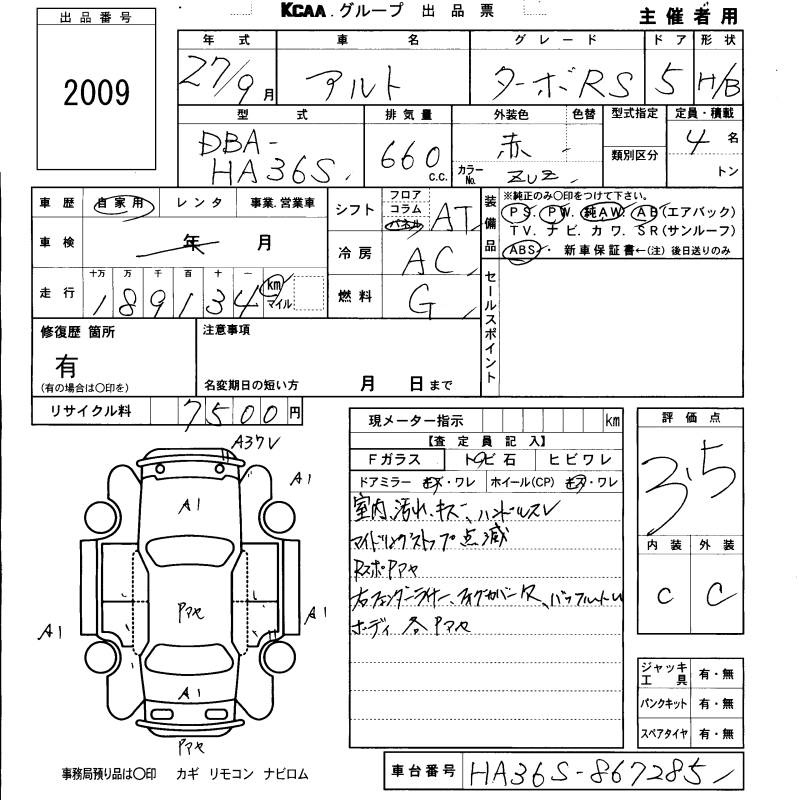 KCAA.グループ 出品票
主催者用
出品番号
2009
年式 車名 グレード ドア 形状
27/9月 アルト ターボRS 5 H/B
型式 排気量 外装色 色替 型式指定 定員・積載
DBA-
HA36S 660 c.c. 赤 4名
カラーNo. ZUZ 類別区分 トン
車歴 自家用 レンタ 事業.営業車
車検 年 月
走行 十万 万 千 百 十 一
189134 km マイル
シフト フロア コラム パネル AT
冷房 AC
燃料 G
装備品
※純正のみ○印をつけて下さい。
PS. PW. 純AW. AB(エアバック)
TV. ナビ. カワ. SR(サンルーフ)
ABS・ 新車保証書←(注)後日送りのみ
セールスポイント
修復歴 箇所
有
(有の場合は○印を)
注意事項
名変期日の短い方 月 日まで
リサイクル料 7500円
現メーター指示 km
【査定員記入】
Fガラス トビ石 ヒビワレ
ドアミラー キズ・ワレ ホイール(CP) キズ・ワレ
室内、汚れ、キズ、ハンドルスレ
アイドリングストップ点滅
RスポPアセ
右フェンダーライナー、フォグカバー欠、バックフルトレ
ボディ各Pアセ
評価点
3.5
内装 外装
C C
ジャッキ工具 有・無
パンクキット 有・無
スペアタイヤ 有・無
A3ワレ
A1
A1
A1
A1
Pアセ
A1
Pアセ
事務局預り品は○印 カギ リモコン ナビロム
車台番号 HA36S-867285